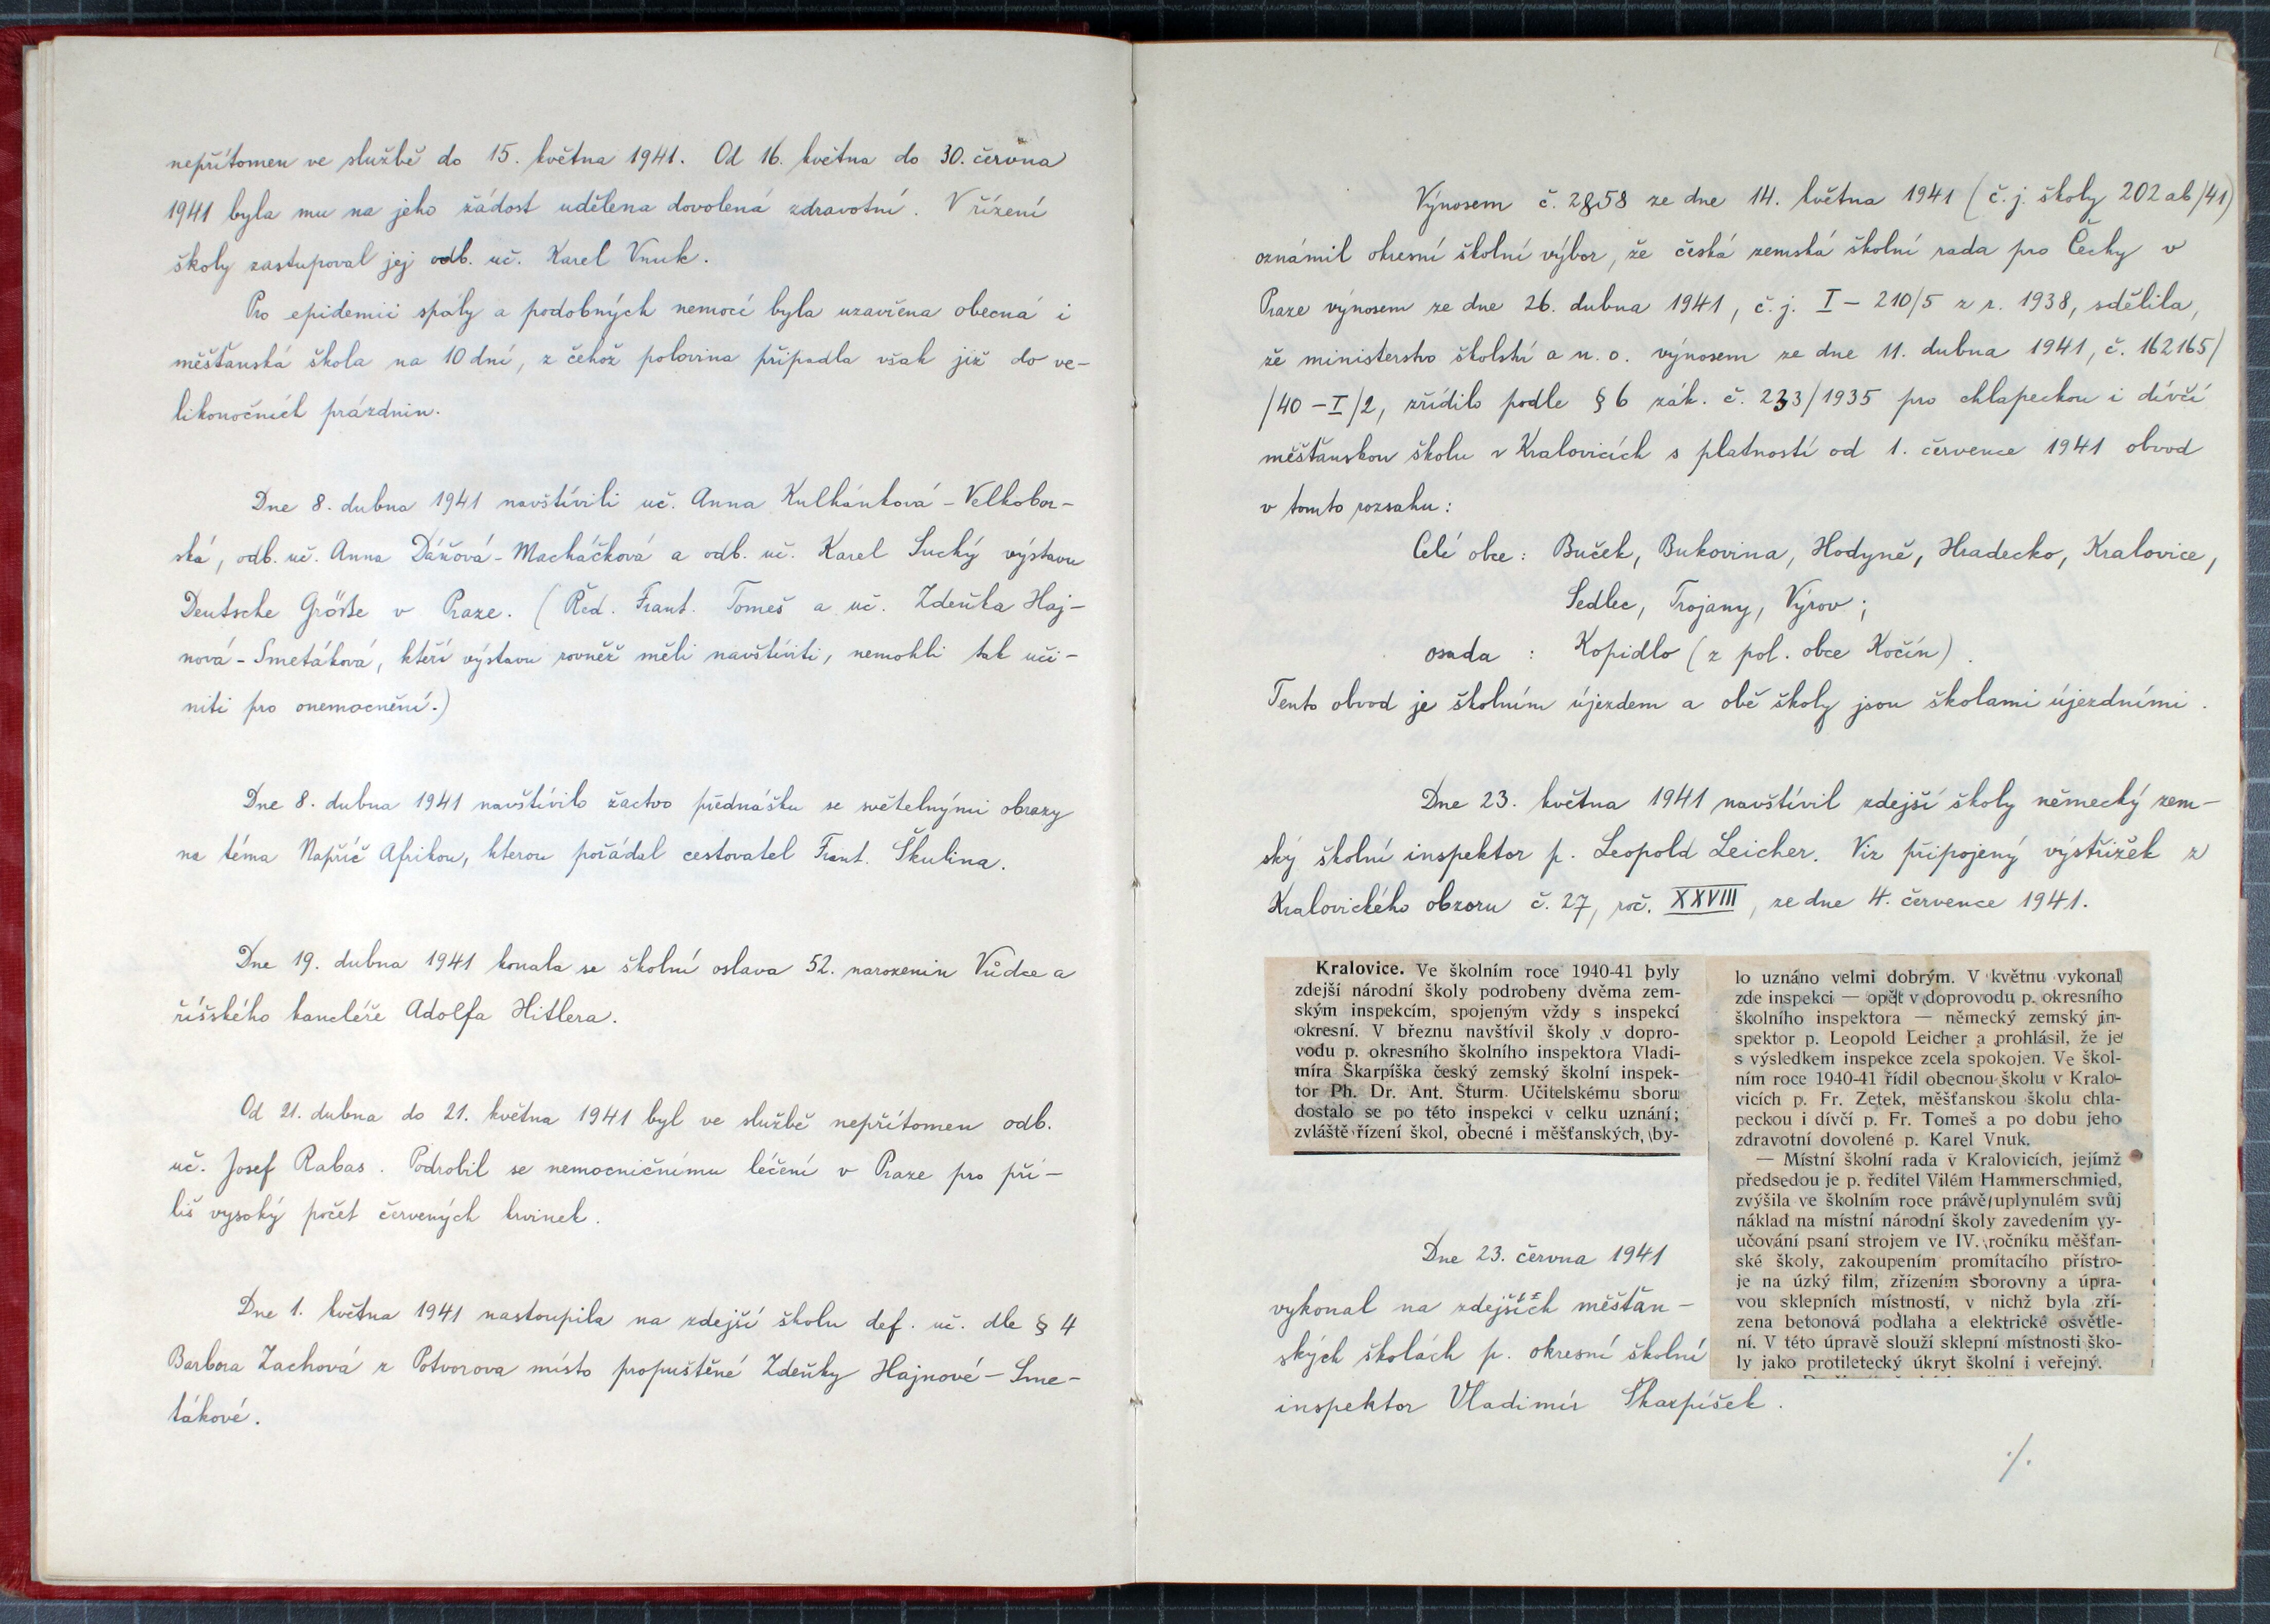 nepřítomen ve službě do 15. května 1941. Od 16. května do 30. června
1941 byla mu na jeho žádost udělena dovolená zdravotní. V řízení
školy zastupoval jej odb. uč. Karel Vnuk.
Pro epidemii spály a podobných nemocí byla uzavřena obecná i
měšťanská škola na 10 dní, z čehož polovina připadla však již do ve-
likonočních prázdnin.
Dne 8. dubna 1941 navštívili uč. Anna Kulhánková - Velkobor-
ská, odb. uč. Anna Dáňová - Macháčková a odb. uč. Karel Suchý výstavu
Deutsche Größe v Praze. (Řed. Frant. Tomeš a uč. Zdeňka Haj-
nová - Smetáková, kteří výstavu rovněž měli navštíviti, nemohli tak uči-
niti pro onemocnění.)
Dne 8. dubna 1941 navštívilo žactvo přednášku se světelnými obrazy
na téma Napříč Afrikou, kterou pořádal cestovatel Frant. Škulina.
Dne 19. dubna 1941 konala se školní oslava 52. narozenin Vůdce a
říšského kancléře Adolfa Hitlera.
Od 21. dubna do 21. května 1941 byl ve službě nepřítomen odb.
uč. Josef Rabas. Podrobil se nemocničnímu léčení v Praze pro pří-
liš vysoký počet červených krvinek.
Dne 1. května 1941 nastoupila na zdejší školu def. uč. dle § 4
Barbora Zachová z Potvorova místo propuštěné Zdeňky Hajnové - Sme-
tákové.
Výnosem č. 2858 ze dne 14. května 1941 (č. j. školy 202 ab/41)
oznámil okresní školní výbor, že česká zemská školní rada pro Čechy v
Praze výnosem ze dne 26. dubna 1941, č. j. I - 210/5 z r. 1938, sdělila,
že ministerstvo školství a n. o. výnosem ze dne 11. dubna 1941, č. 162165/
/40 - I/2, zřídilo podle § 6 zák. č. 233/1935 pro chlapeckou i dívčí
měšťanskou školu v Kralovicích s platností od 1. července 1941 obvod
v tomto rozsahu:
Celé obce: Buček, Bukovina, Hodyně, Hradecko, Kralovice,
Sedlec, Trojany, Výrov;
osada : Kopidlo (z pol. obce Kočín).
Tento obvod je školním újezdem a obě školy jsou školami újezdními.
Dne 23. května 1941 navštívil zdejší školy německý zem-
ský školní inspektor p. Leopold Leicher. Viz připojený výstřižek z
Kralovického obzoru č. 27, roč. XXVIII, ze dne 4. července 1941.
Kralovice. Ve školním roce 1940-41 byly
zdejší národní školy podrobeny dvěma zem-
ským inspekcím, spojeným vždy s inspekcí
okresní. V březnu navštívil školy v dopro-
vodu p. okresního školního inspektora Vladi-
míra Škarpíška český zemský školní inspek-
tor Ph. Dr. Ant. Šturm. Učitelskému sboru
dostalo se po této inspekci v celku uznání;
zvláště řízení škol, obecné i měšťanských, by-
lo uznáno velmi dobrým. V květnu vykonal
zde inspekci — opět v doprovodu p. okresního
školního inspektora — německý zemský in-
spektor p. Leopold Leicher a prohlásil, že je
s výsledkem inspekce zcela spokojen. Ve škol-
ním roce 1940-41 řídil obecnou školu v Kralo-
vicích p. Fr. Zetek, měšťanskou školu chla-
peckou i dívčí p. Fr. Tomeš a po dobu jeho
zdravotní dovolené p. Karel Vnuk.
— Místní školní rada v Kralovicích, jejímž
předsedou je p. ředitel Vilém Hammerschmied,
zvýšila ve školním roce právě uplynulém svůj
náklad na místní národní školy zavedením vy-
učování psaní strojem ve IV. ročníku měšťan-
ské školy, zakoupením promítacího přístro-
je na úzký film, zřízením sborovny a úpra-
vou sklepních místností, v nichž byla zří-
zena betonová podlaha a elektrické osvětle-
ní. V této úpravě slouží sklepní místnosti ško-
ly jako protiletecký úkryt školní i veřejný.
Dne 23. června 1941
vykonal na zdejších měšťan-
ských školách p. okresní školní
inspektor Vladimír Škarpíšek.
./.